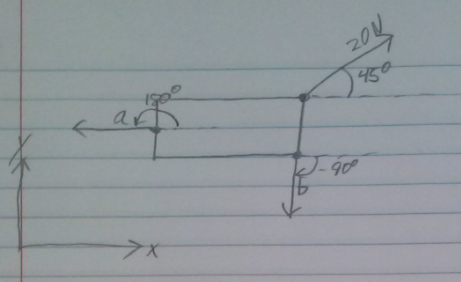 20N
45°
180°
a
-90°
b
y
x